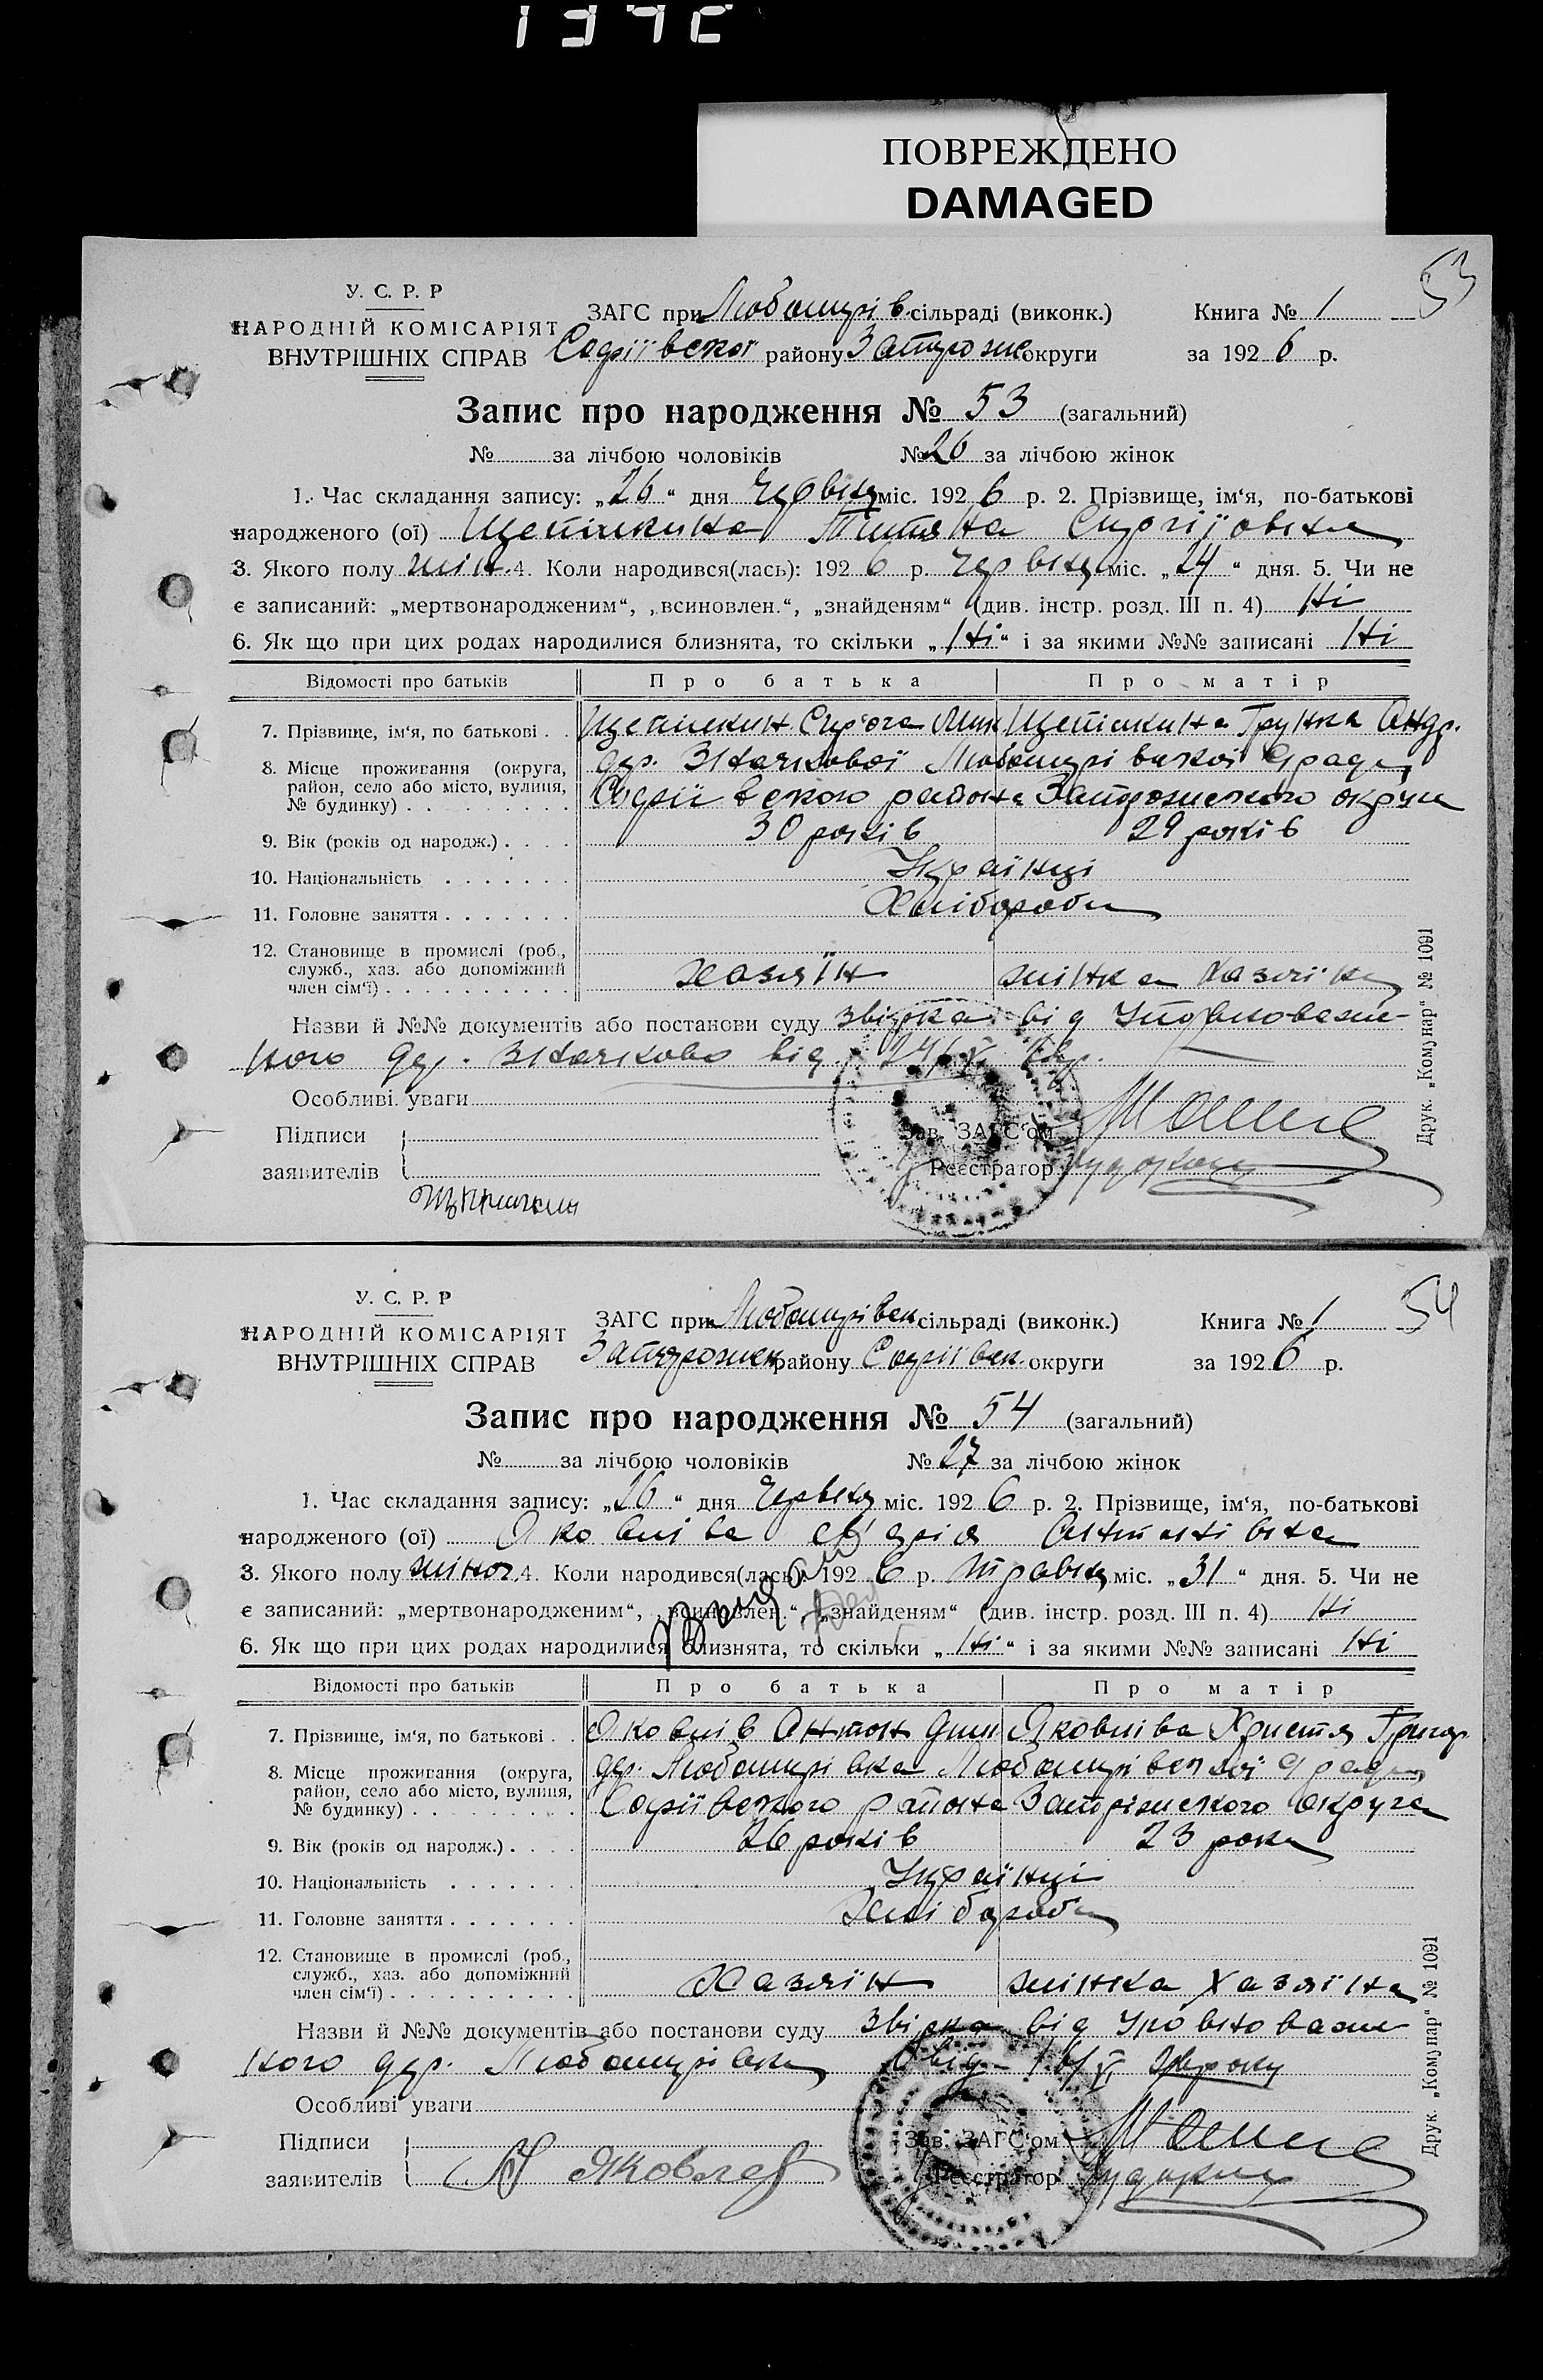 ПОВРЕЖДЕНО
DAMAGED
53
У. С. Р. Р
НАРОДНІЙ КОМІСАРІЯТ
ВНУТРІШНІХ СПРАВ
ЗАГС при Любомирів. сільраді (виконк.)
Книга № 1
Софіївекої району Запорож округи
за 192 6 р.
Запис про народження № 53 (загальний)
№ за лічбою чоловіків № 26 за лічбою жінок
1. Час складання запису: „26“ дня червня міс. 192 6 р. 2. Прізвище, ім‘я, по-батькові
народженого (ої) Щетінкина Тітяна Сиргіїовна
3. Якого полу жін. 4. Коли народився(лась): 192 6 р. червня міс. „24“ дня. 5. Чи не
є записаний: „мертвонародженим“, „всиновлен.“, „знайденям“ (див. інстр. розд. III п. 4) Ні
6. Як що при цих родах народилися близнята, то скільки „Ні“ і за якими №№ записані Ні
Відомості про батьків Про батька Про матір
7. Прізвище, ім‘я, по батькові . . Щетінкин Сир‘ога Мик Щетінкина Грунка Андр.
8. Місце проживання (округа, район, село або місто, вулиця, № будинку) дер. Значкової Любомирівської С/ради
Софіївського района Запорожського округи
9. Вік (років од народж.) 30 років 29 років
10. Національність Українці
11. Головне заняття Хліборобы
12. Становище в промислі (роб., служб., хаз. або допоміжний член сім‘ї) хазяїн жінка хазяїна
Назви й №№ документів або постанови суду звірка від Уповноваже-
ного дер. Значково від 24/VI
Особливі уваги
Підписи
заявителів
Зав. ЗАГС‘ом
Реєстратор
Друк. „Комунар“ № 1091
54
У. С. Р. Р
НАРОДНІЙ КОМІСАРІЯТ
ВНУТРІШНІХ СПРАВ
ЗАГС при Любомирівск сільраді (виконк.)
Книга № 1
Запорожск району Софіївск. округи
за 192 6 р.
Запис про народження № 54 (загальний)
№ за лічбою чоловіків № 27 за лічбою жінок
1. Час складання запису: „26“ дня червня міс. 192 6 р. 2. Прізвище, ім‘я, по-батькові
народженого (ої) Яковліва Марія Антонівна
3. Якого полу жіноч. 4. Коли народився(лась): 192 6 р. травня міс. „31“ дня. 5. Чи не
є записаний: „мертвонародженим“, „всиновлен.“, „знайденям“ (див. інстр. розд. III п. 4) Ні
6. Як що при цих родах народилися близнята, то скільки „Ні“ і за якими №№ записані Ні
Відомості про батьків Про батька Про матір
7. Прізвище, ім‘я, по батькові . . Яковлів Антон Яковліва Христя Григор
8. Місце проживання (округа, район, село або місто, вулиця, № будинку) дер. Любомирівка Любомирівської С/ради
Софіївського района Запоріжського округа
9. Вік (років од народж.) 26 років 23 роки
10. Національність Українці
11. Головне заняття Хлібороби
12. Становище в промислі (роб., служб., хаз. або допоміжний член сім‘ї) Хазяїн жінка хазяїна
Назви й №№ документів або постанови суду звірка від Уповноваже
ного дер. Любомирівки
Особливі уваги
Підписи
заявителів
Яковлев
Зав. ЗАГС‘ом
Реєстратор
Друк. „Комунар“ № 1091